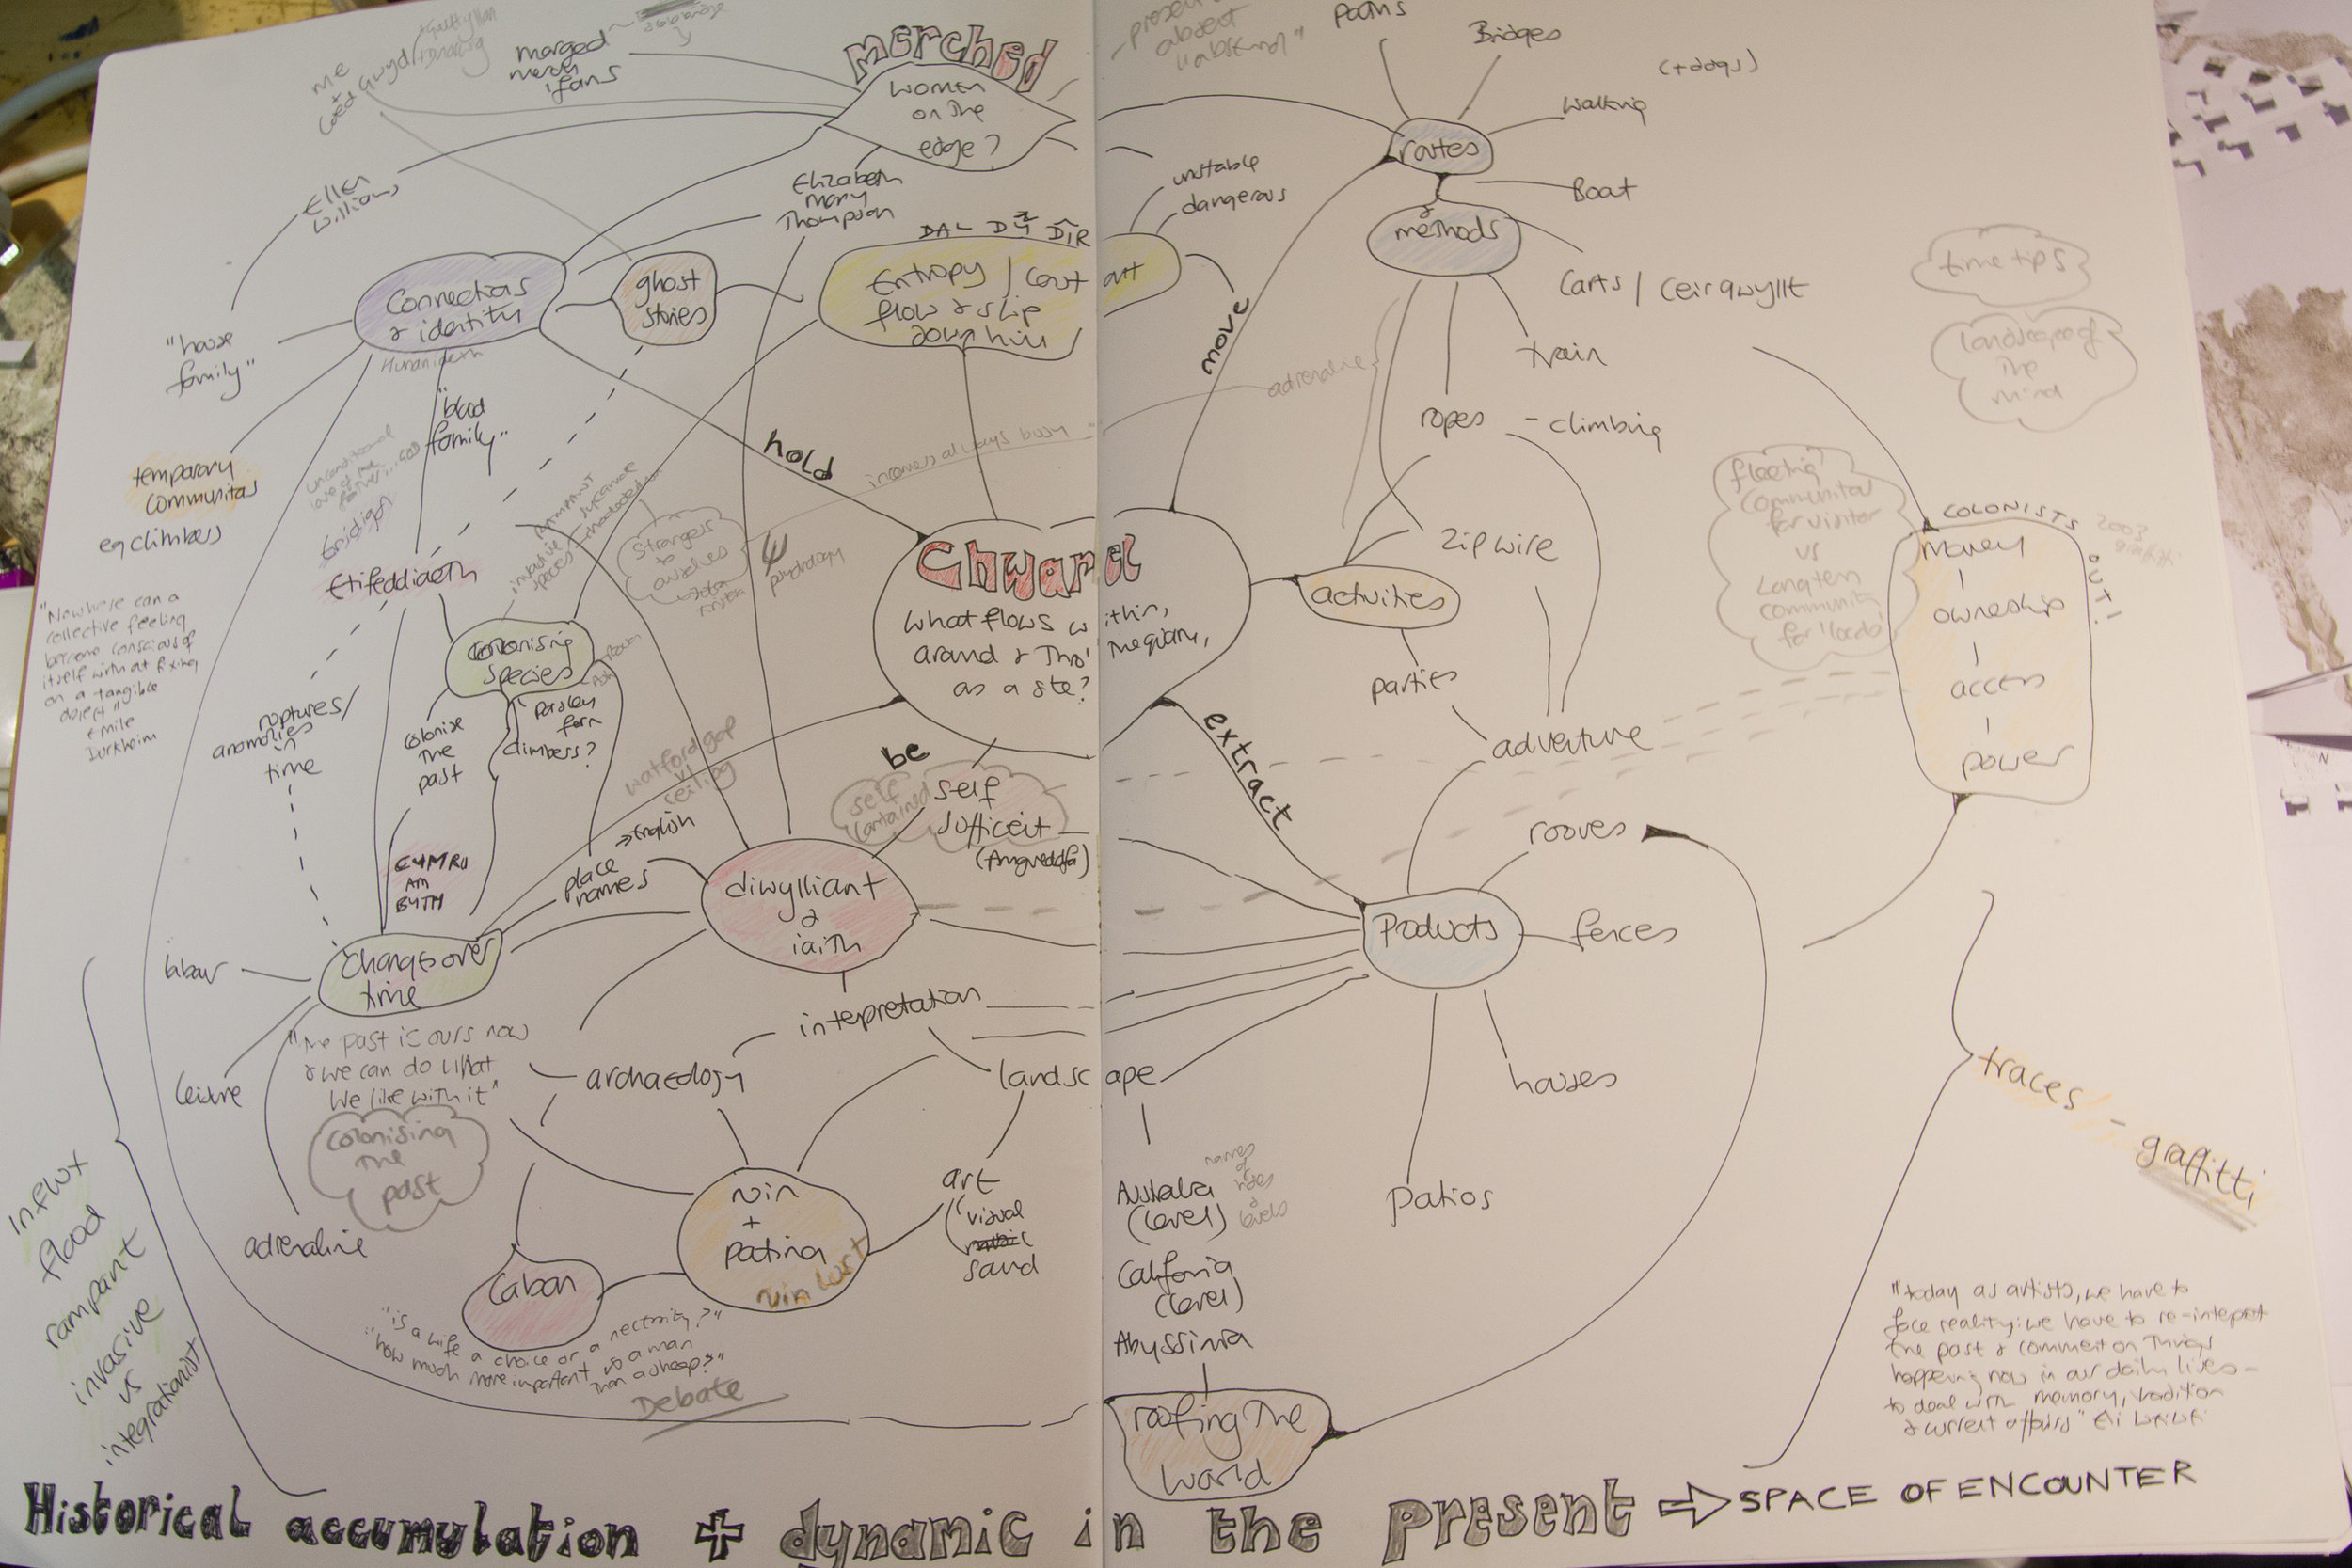 me
+
coed
Gwyd
marged
merch
ifans
merched
women
on the
edge?
"present
absent
Paths
Bridges
(+dogs)
Walking
routes
&
methods
Boat
Carts / ceir gwyllt
train
ropes - climbing
zip wire
unstable
dangerous
move
adrenaline
Ellen
Williams
Elizabeth
Mary
Thompson
DAL DŶ DÎR
Entropy / count art
flow & slip
down hill
Connections
& identity
ghost
stories
"house
family"
"blood
family"
temporary
communitas
eg climbers
hold
Etifeddiaeth
invasive
species
RAMPANT
sycamore
rhododendron
strangers
to
ourselves
psychology
Chwarel
What flows within,
around & thro' the quarry,
as a site?
activities
parties
adventure
time tips
landscape of
the
mind
fleeting
communitas
for visitor
vs
Long term
community
for 'locals'
COLONISTS
OUT!
2003
graffiti
money
ownership
access
power
"Nowhere can a
collective feeling
become conscious of
itself without fixing
on a tangible
object"
Emile
Durkheim
colonising
species
parsley
fern
climbers?
colonise
the
past
ruptures/
anomolies
in
time
CYMRU
AM
BYTH
watford gap
be
self
contained
self
sufficeit
extract
English
place
names
diwylliant
&
iaith
Products
rooves
fences
houses
Patios
changes over
time
labour
leisure
adrenaline
"The past is ours now
& we can do what
we like with it"
colonising
the
past
interpretation
archaeology
landscape
art
("visual
sound
Australia
(level)
California
(level)
Abyssinia
names
of
holes
&
levels
ruin
+
patina
ruin lust
Caban
"is a wife a choice or a necessity?"
"how much more important is a man
than a sheep?"
Debate
roofing the
world
traces - graffitti
influx
flood
rampant
invasive
vs
integrationist
"today as artists, we have to
face reality: we have to re-interpret
the past & comment on things
happening now in our daily lives -
to deal with memory, tradition
& current affairs"
Historical accumulation + dynamic in the present ⇒ SPACE OF ENCOUNTER